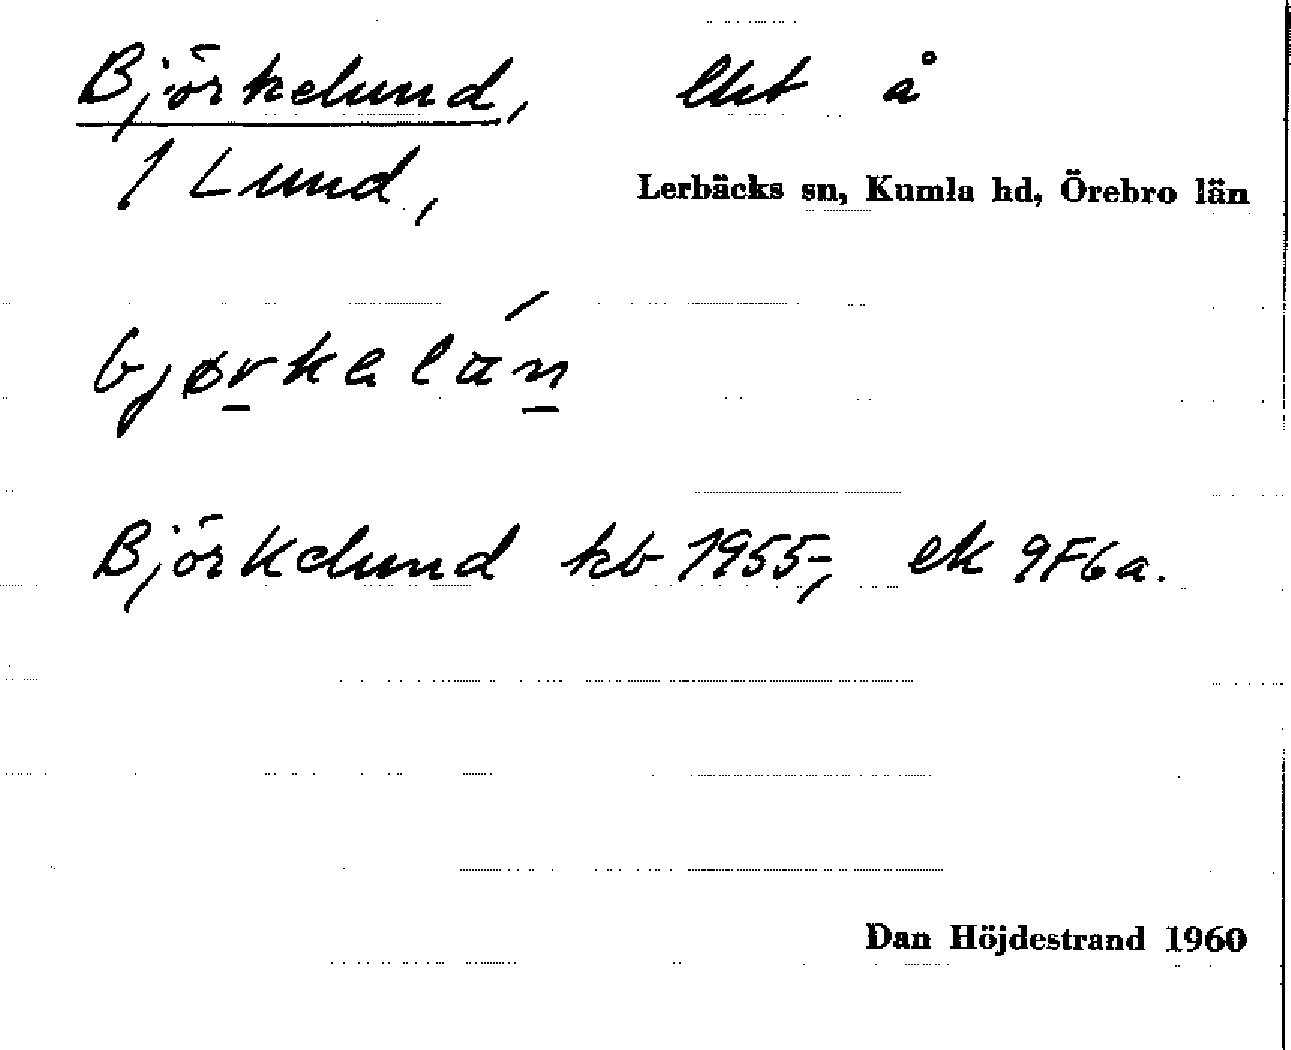 Björkelund, lht å
1 Lund,
Lerbäcks sn, Kumla hd, Örebro län
bjørkalán
Björkelund kb 1955-, ek 9F6a.
Dan Höjdestrand 1960